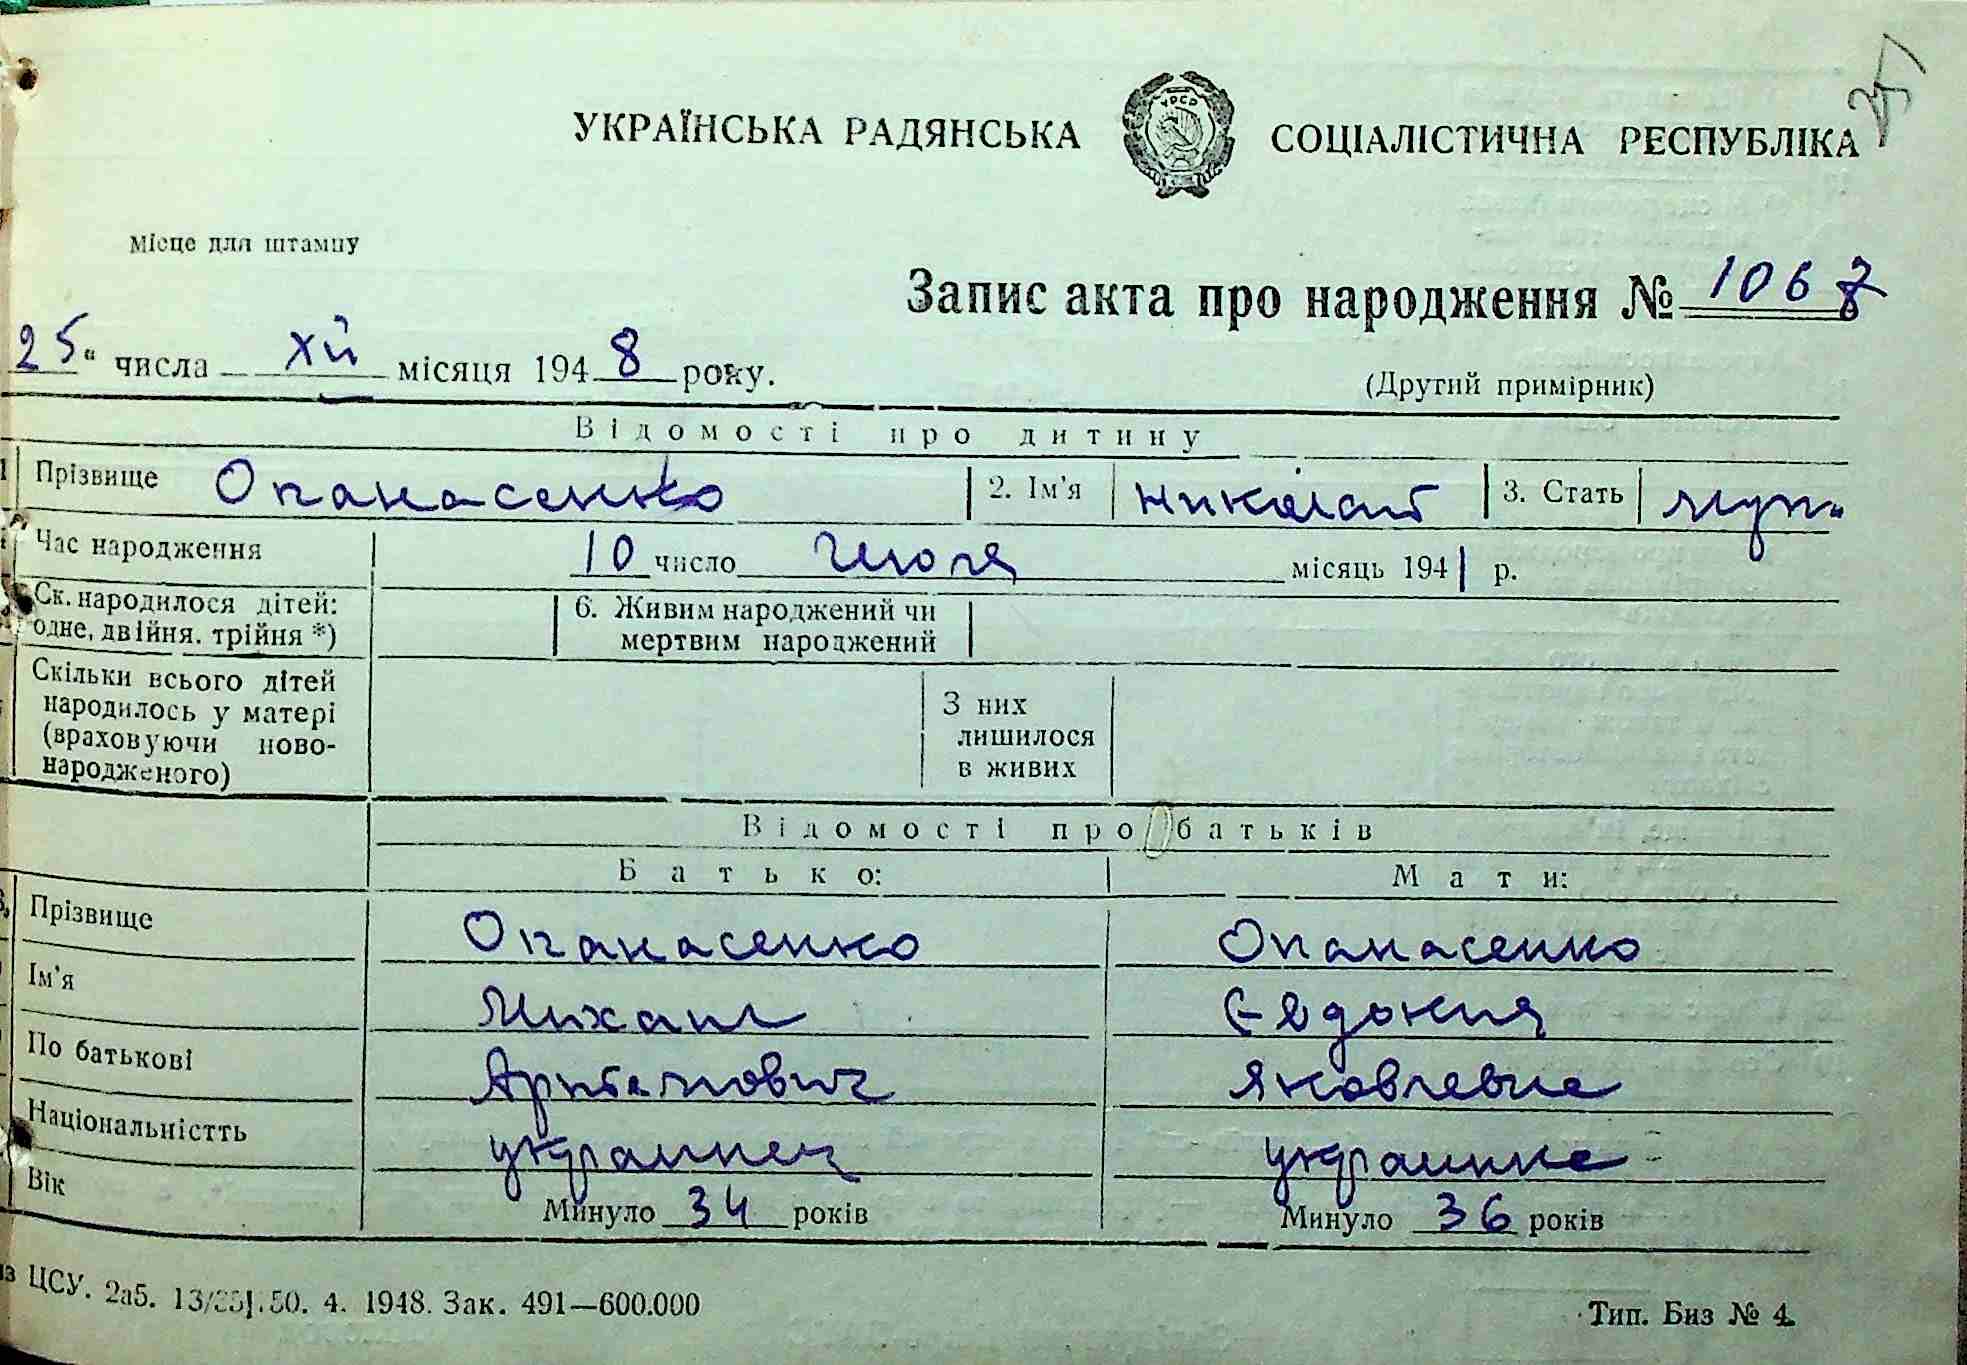 251
УКРАЇНСЬКА РАДЯНСЬКА СОЦІАЛІСТИЧНА РЕСПУБЛІКА
УРСР
Місце для штампу
Запис акта про народження № 1067
25 " числа XII місяця 1948 року.
(Другий примірник)
Відомості про дитину
1 Прізвище Опанасенко 2. Ім'я Николай 3. Стать муж.
Час народження 10 число Июля місяць 1941 р.
Ск. народилося дітей: одне, двійня. трійня *) 6. Живим народжений чи мертвим народжений
Скільки всього дітей народилось у матері (враховуючи ново-народженого) З них лишилося в живих
Відомості про батьків
Батько: Мати:
Прізвище Опанасенко Опанасенко
Ім'я Михаил Евдокия
По батькові Артемович Яковлевна
Національністть украинец украинка
Вік Минуло 34 років Минуло 36 років
ЦСУ. 2а5. 50. 4. 1948. Зак. 491—600.000
Тип. Биз № 4.